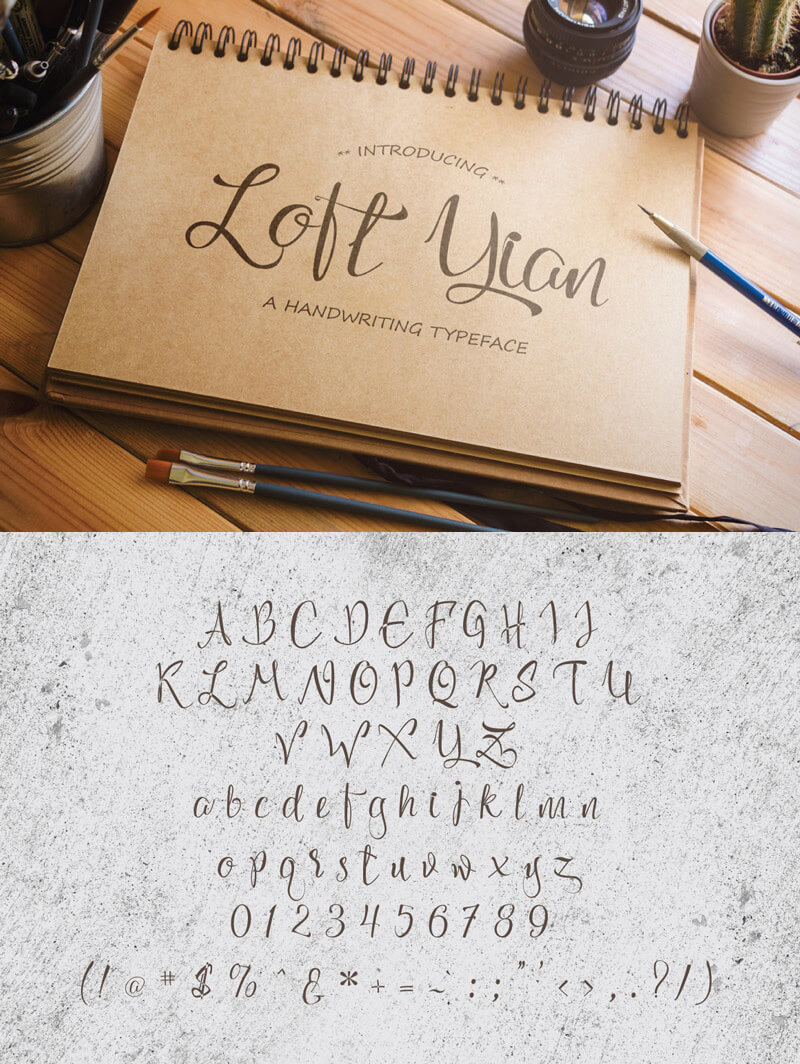 ** INTRODUCING **
Loft Yian
A HANDWRITING TYPEFACE
A B C D E F G H I J
K L M N O P Q R S T U
V W X Y Z
a b c d e f g h i j k l m n
o p q r s t u v w x y z
0 1 2 3 4 5 6 7 8 9
( ! @ # $ % ^ & * + = ~ ` : ; " ' < > , . ? / )